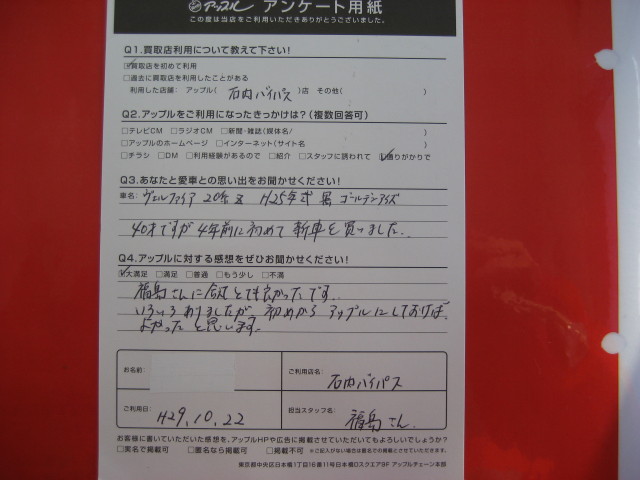 アップル アンケート用紙
この度は当店をご利用いただきありがとうございました。
Q1.買取店利用について教えて下さい!
☑買取店を初めて利用
□過去に買取店を利用したことがある
利用した店舗: アップル( 石内バイパス )店 その他( )
Q2.アップルをご利用になったきっかけは?(複数回答可)
□テレビCM □ラジオCM □新聞・雑誌(媒体名/ )
□アップルのホームページ □インターネット(サイト名 )
□チラシ □DM □利用経験があるので □紹介 □スタッフに誘われて ☑通りがかりで
Q3.あなたと愛車との思い出をお聞かせください!
車名: ヴェルファイア 20系 Z H25年式 黒 ゴールデンアイズ
40才ですが4年前に初めて新車を買いました。
Q4.アップルに対する感想をぜひお聞かせください!
☑大満足 □満足 □普通 □もう少し □不満
福島さんに会えとても良かったです。
いろいろ わりましたが、初めから アップルにしておけば、
よかったと思います。
お名前:
ご利用店名: 石内バイパス
ご利用日: H29.10.22
担当スタッフ名: 福島さん
お客様に書いていただいた感想を、アップルHPや広告に掲載させていただいてもよろしいでしょうか?
□実名で掲載可 □匿名なら掲載可 □掲載不可 ※ご記入がない場合は匿名での掲載とさせていただきます。
東京都中央区日本橋1丁目16番11号日本橋Dスクエア9F アップルチェーン本部